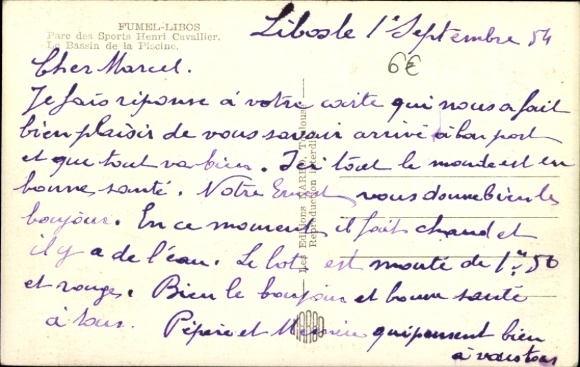 FUMEL-LIBOS
Parc des Sports Henri Cavallier.
Le Bassin de la Piscine.
Libos le 1er Septembre 54
6€
Cher Marcel.
Je fais réponse à votre carte qui nous a fait
bien plaisir de vous savoir arrivé à bon port
et que tout va bien. Ici tout le monde est en
bonne santé. Notre Ernest vous donne bien le
boujour. En ce moment il fait chaud et
il y a de l'eau. Le lot est monté de 1m50
et rouge. Bien le boujour et bonne santé
à tous. Pépère et Mémère qui pensent bien
à vous tous
Les Editions NARBO, Toulouse
Reproduction interdite